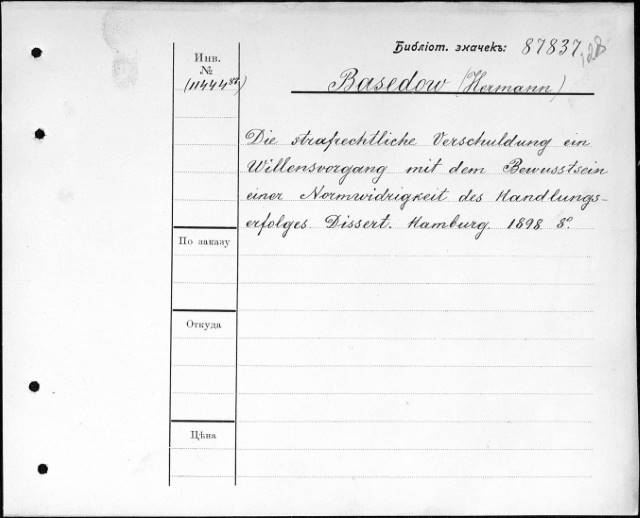 Библіот. значекъ: 87837
128
Инв.
№
(11444⁸⁶)
Basedow (Hermann)
Die strafrechtliche Verschuldung ein
Willensvorgang mit dem Bewusstsein
einer Normwidrigkeit des Handlungs-
erfolges. Dissert. Hamburg. 1898. 8º.
По заказу
Откуда
Цѣна